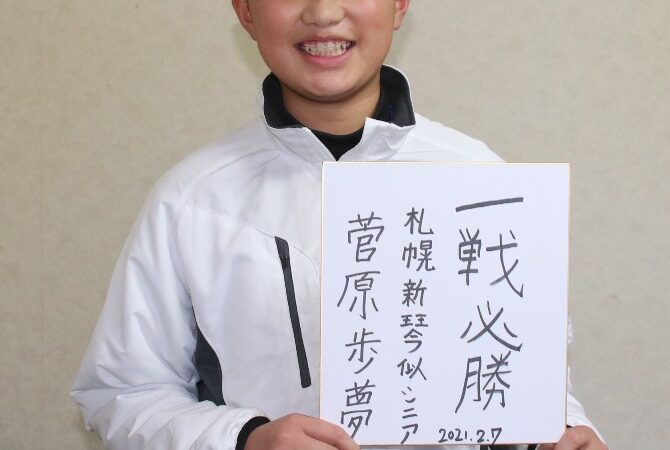 一戦必勝
札幌新琴似シニア
菅原歩夢
2021.2.7